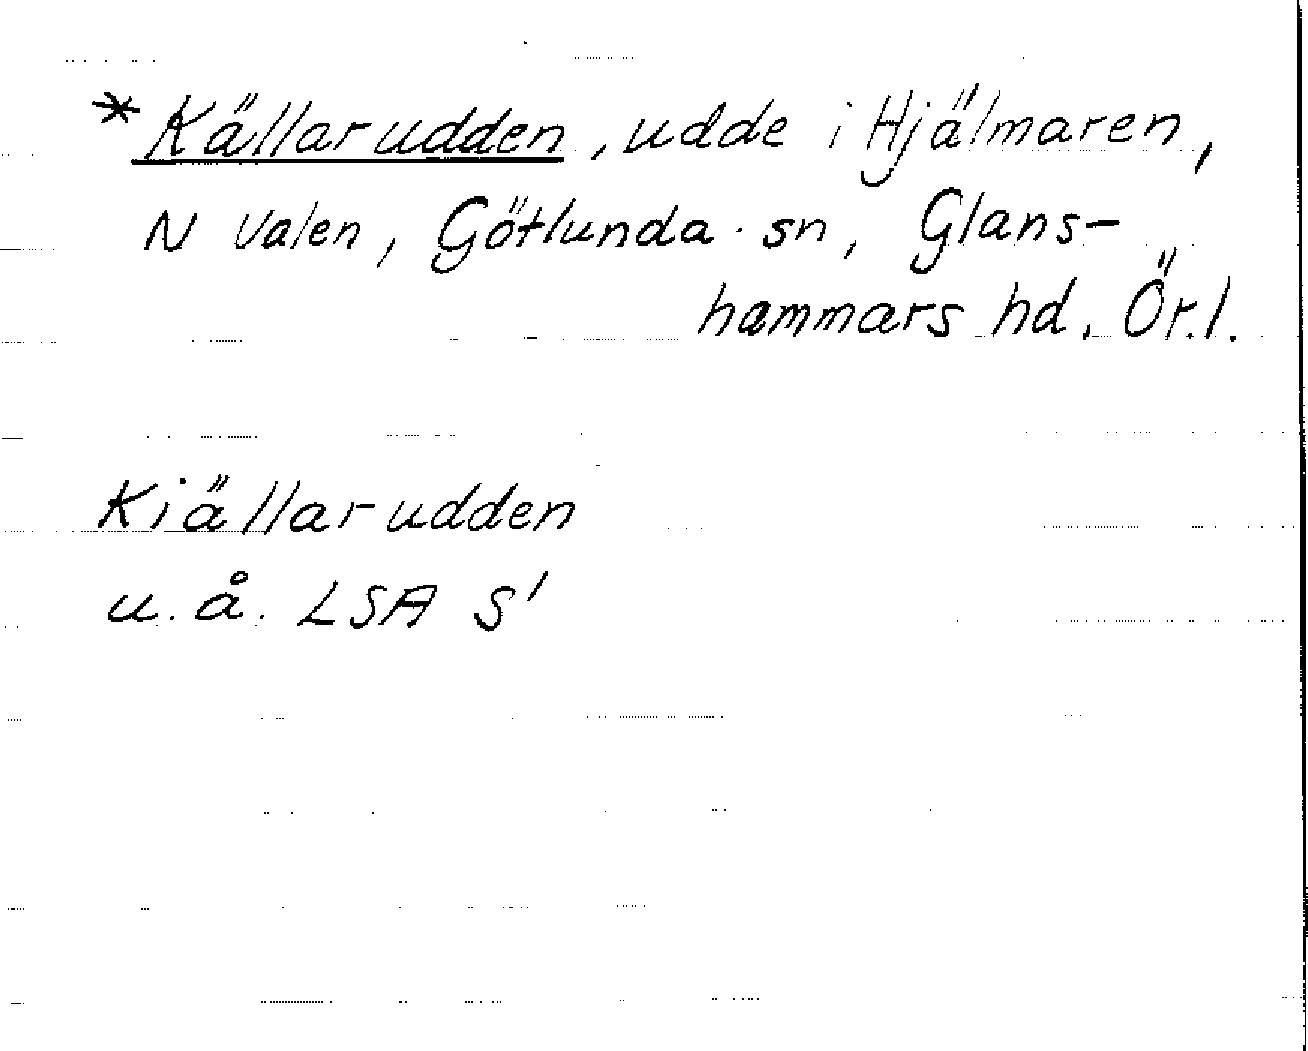 * Källarudden, udde i Hjälmaren,
N Valen, Götlunda sn, Glans-
hammars hd, Ör.l.
Kiällarudden
u.å. LSA S'